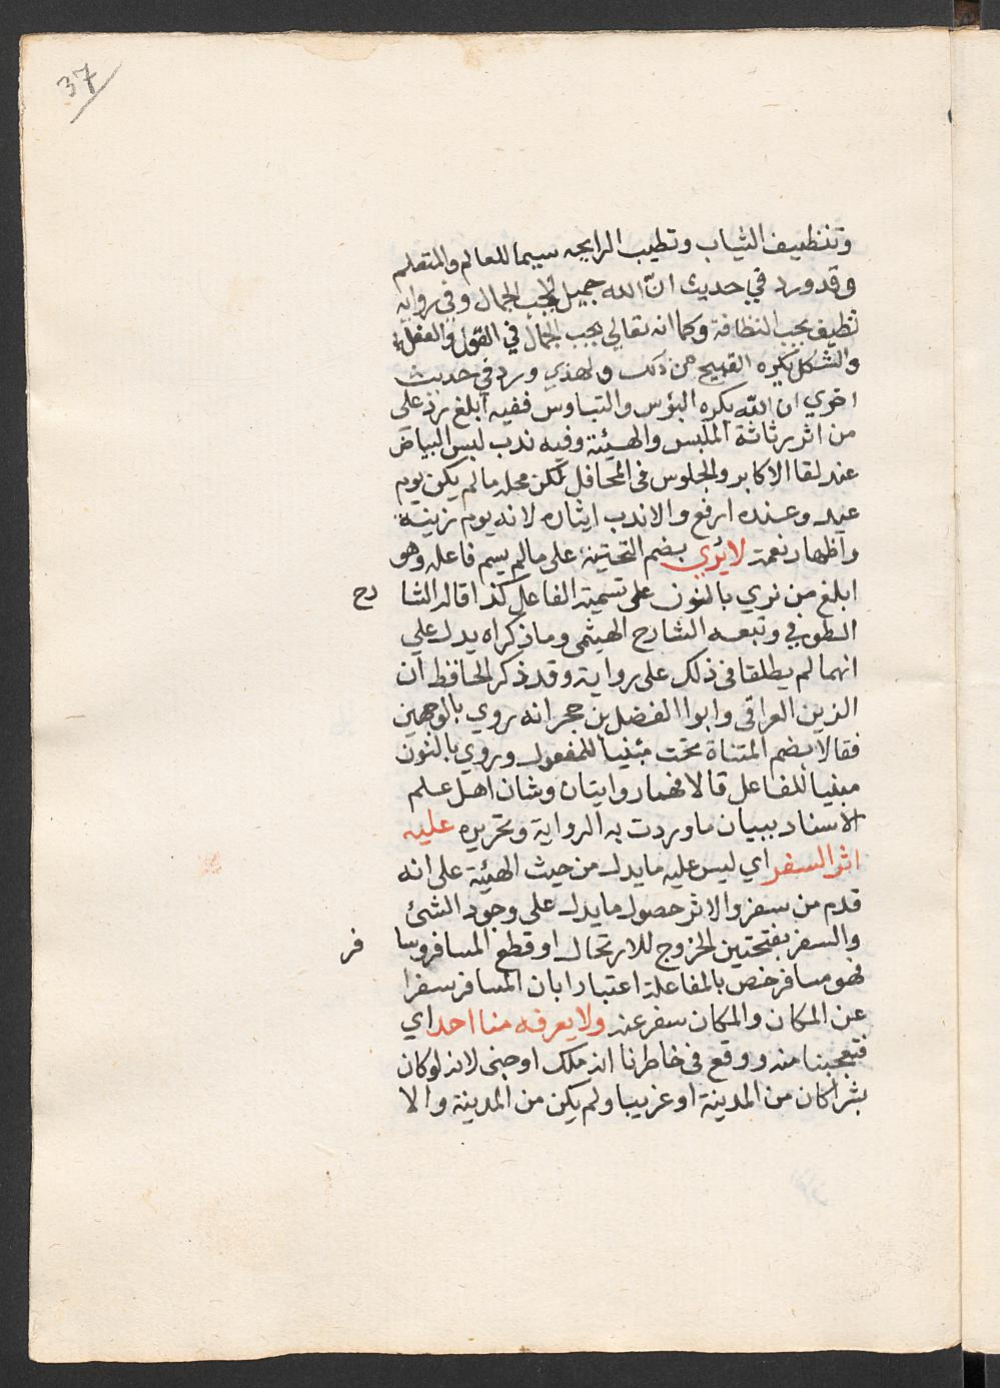 37
وتنظيف الثياب وتطيب الرايحه سيما للعالم والمتعلم
وقد ورد في حديث ان الله جميل يحب الجمال وفي روايه
نظيف يحب النظافة وكما انه تعالي يحب الجمال في القول والفعل
والشكل يكره القبيح من ذلك ولهذي ورد في حديث
اخري ان الله يكره البؤس والتباوس ففيه ابلغ رد على
من اثر رثاثة الملبس والهيئة وفيه ندب لبس البياض
عند لقا الاكابر والجلوس في المحافل لكن محله ما لم يكن يوم
عيد وعنده ارفع والاندب ايثاره لانه يوم زينة
واظهار نعمة لا يُري بضم التحتية على ما لم يسم فاعله وهو
ابلغ من نري بالنون على تسمية الفاعل كذا قاله الشا رح
الطوفي وتبعه الشارح الهيثمى وما ذكراه يدل علي
انهما لم يطلقا في ذلك على رواية وقد ذكر الحافظ ان
الزين العراقي وابوا الفضل بن حجر انه روي بالوجهين
فقالا بضم المثناة تحت مبنيا للمفعول وروي بالنون
مبنيا للفاعل قالا فهما روايتان وشان اهل علم
الاسناد ببيان ما وردت به الرواية وتحريره عليه
اثر السفر اي ليس عليه ما يدل من حيث الهيئة على انه
قدم من سفر والاثر حصول ما يدل على وجود الشئ
والسفر بفتحتين الخروج للارتحال او قطع المسافر وسا فر
فهو مسافر خص بالمفاعلة اعتبارا بان المسافر سفرا
عن المكان والمكان سفر عنه ولا يعرفه منا احد اي
فتعجبنا منه ووقع في خاطرنا انه ملك او جنى لانه لو كان
بشرا كان من المدينة او غريبا ولم يكن من المدينة والا